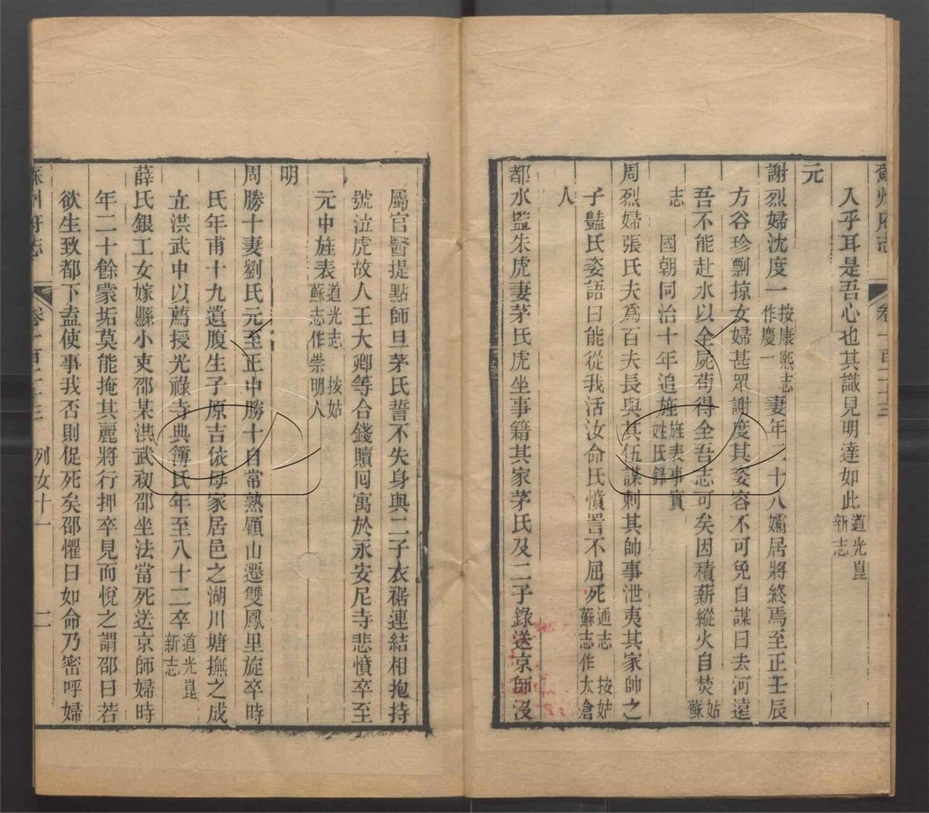 蘇州府志 卷一百二十三
入乎耳是吾心也其識見明達如此道光崑新志
元
謝烈婦沈度一按康熙志作慶一妻年二十八孀居將終焉至正壬辰
方谷珍剽掠女婦甚眾謝度其姿容不可免自謀曰去河遠
吾不能赴水以全屍苟得全吾志可矣因積薪縱火自焚姑蘇
志 國朝同治十年追旌旌表事實姓氏錄
周烈婦張氏夫爲百夫長與其伍謀刺其帥事泄夷其家帥之
子豔氏姿語曰能從我活汝命氏憤詈不屈死通志 按姑蘇志作太倉
人
都水監朱虎妻茅氏虎坐事籍其家茅氏及二子錄送京師沒
屬官醫提點師旦茅氏誓不失身與二子衣裾連結相抱持
號泣虎故人王大卿等合錢贖囘寓於永安尼寺悲憤卒至
元中旌表道光志 按姑蘇志作崇明人
明
周勝十妻劉氏元至正中勝十自常熟顧山遷雙鳳里旋卒時
氏年甫十九遺腹生子原吉依母家居邑之湖川塘撫之成
立洪武中以薦授光祿寺典簿氏年至八十二卒道光崑新志
薛氏銀工女嫁縣小吏邵某洪武初邵坐法當死送京師婦時
年二十餘蒙垢莫能掩其麗將行押卒見而悅之謂邵曰若
欲生致都下盍使事我否則促死矣邵懼曰如命乃密呼婦
蘇州府志 卷一百二十三 列女十一 二